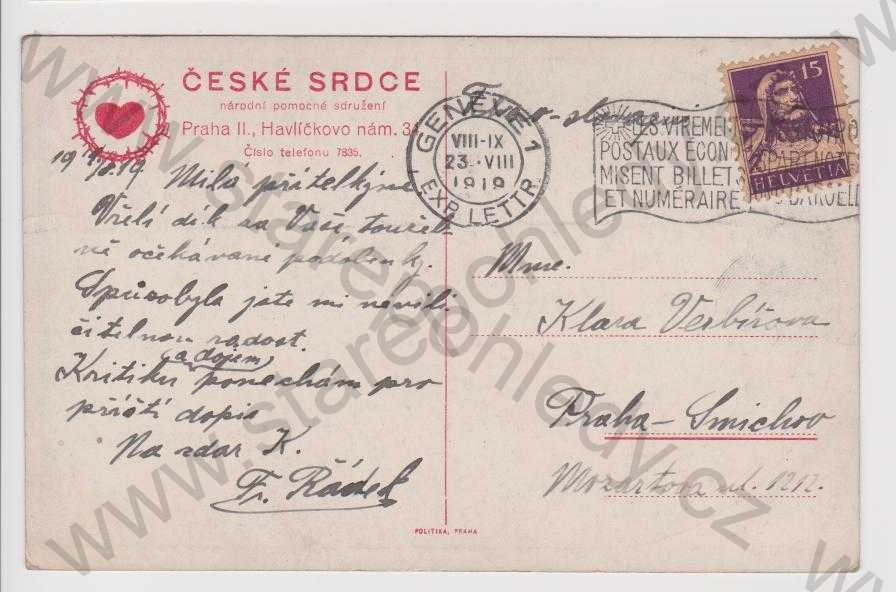 ČESKÉ SRDCE
národní pomocné sdružení
Praha II., Havlíčkovo nám. 31
Číslo telefonu 7835.
Milá přítelkyně
Vřelý dík za Vaši toužeb
ně očekávané podobenky.
Způsobyla jste mi nevýli
čitelnou radost.
a dojem
Kritiku ponechám pro
příští dopis
Na zdar K.
Fr. Řádek
POLITIKA, PRAHA
GENÈVE 1
VIII-IX
23.VIII
1919
EXP. LETTR.
LES VIREMEN
POSTAUX ÉCON
MISENT BILLETS
ET NUMÉRAIRE
15
HELVETIA
Mme.
Klara Verbířova
Praha - Smichov
Mozartova ul. 1212.
www.starepohledy.cz